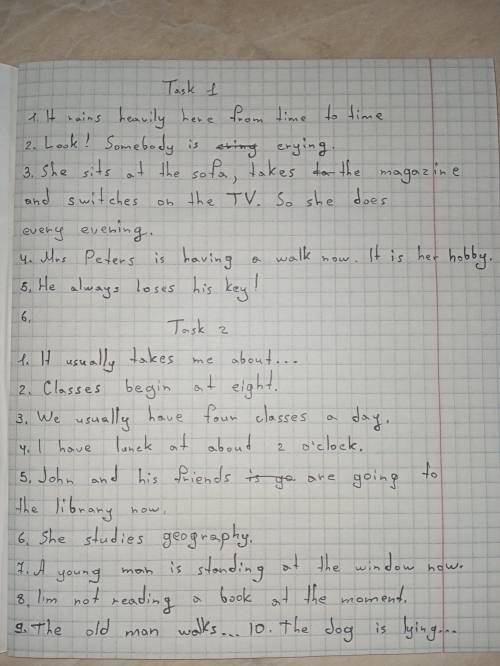 Task 1
1. It rains heavily here from time to time
2. Look! Somebody is crying.
3. She sits at the sofa, takes the magazine
and switches on the TV. So she does
every evening.
4. Mrs Peters is having a walk now. It is her hobby.
5. He always loses his key!
6.
Task 2
1. It usually takes me about...
2. Classes begin at eight.
3. We usually have four classes a day.
4. I have lunck at about 2 o'clock.
5. John and his friends is go are going to
the library now.
6. She studies geography.
7. A young man is standing at the window now.
8. I'm not reading a book at the moment.
9. The old man walks... 10. The dog is lying...